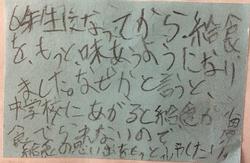 6年生になってから、給食
を、もっと、味あうようになり
ました。なぜかと言うと、
中学校にあがると給食が
食べられないので
給食の思い出をもっと